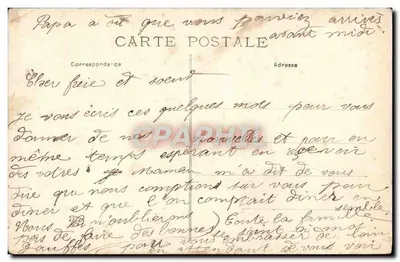 Papa a dit que vous pouviez arriver
avant midi
CARTE POSTALE
Correspondance
Adresse
Cher frère et soeur
Je vous écris ces quelques mots pour vous
donner de nos nouvelles et pour en
même temps espérant en recevoir
des votres Maman m'a dit de vous
dire que nous comptions sur vous pour
diner et que l'on comptait diner ensemble
Nous n'oublierons
pas de faire des bonnes
Toute la famille
se joint à moi
pour vous embrasser de loin
en attendant de vous voir